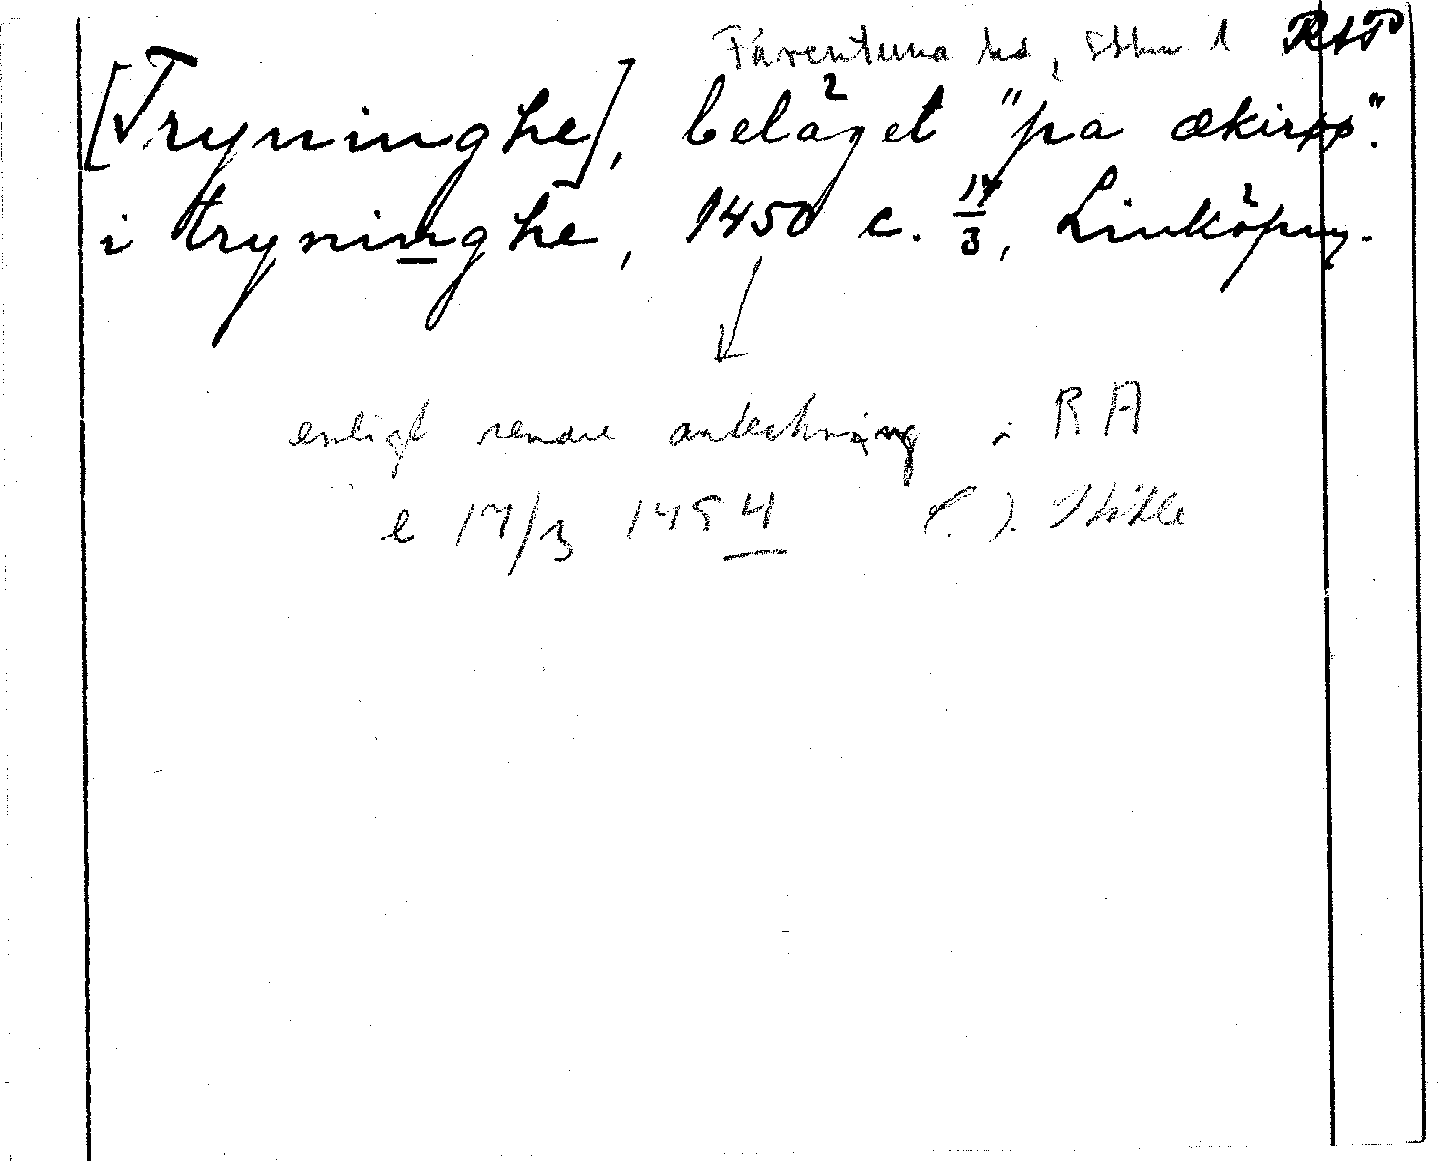 Färentuna hd, Sthm l RAP
[Tryninghe], beläget "pa ækirøø".
i tryninghe, 1450 c. 17/3, Linköping.
enligt senare anteckning i RA
e 17/3 1454